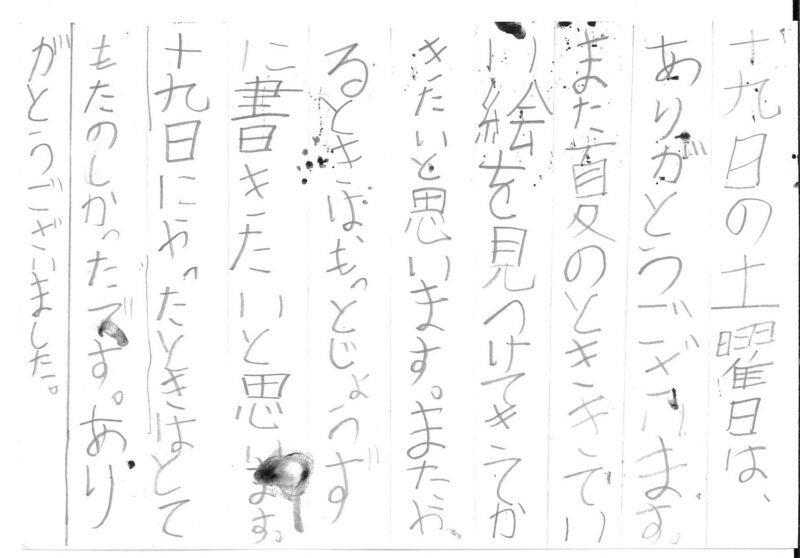 十九日の土曜日は、
ありがとうございます。
また夏のときき
い絵を見つけてきてか
きたいと思います。またや
るときは、もっとじょうず
に書きたいと思います。
十九日にやったときはとて
もたのしかったです。あり
がとうございました。